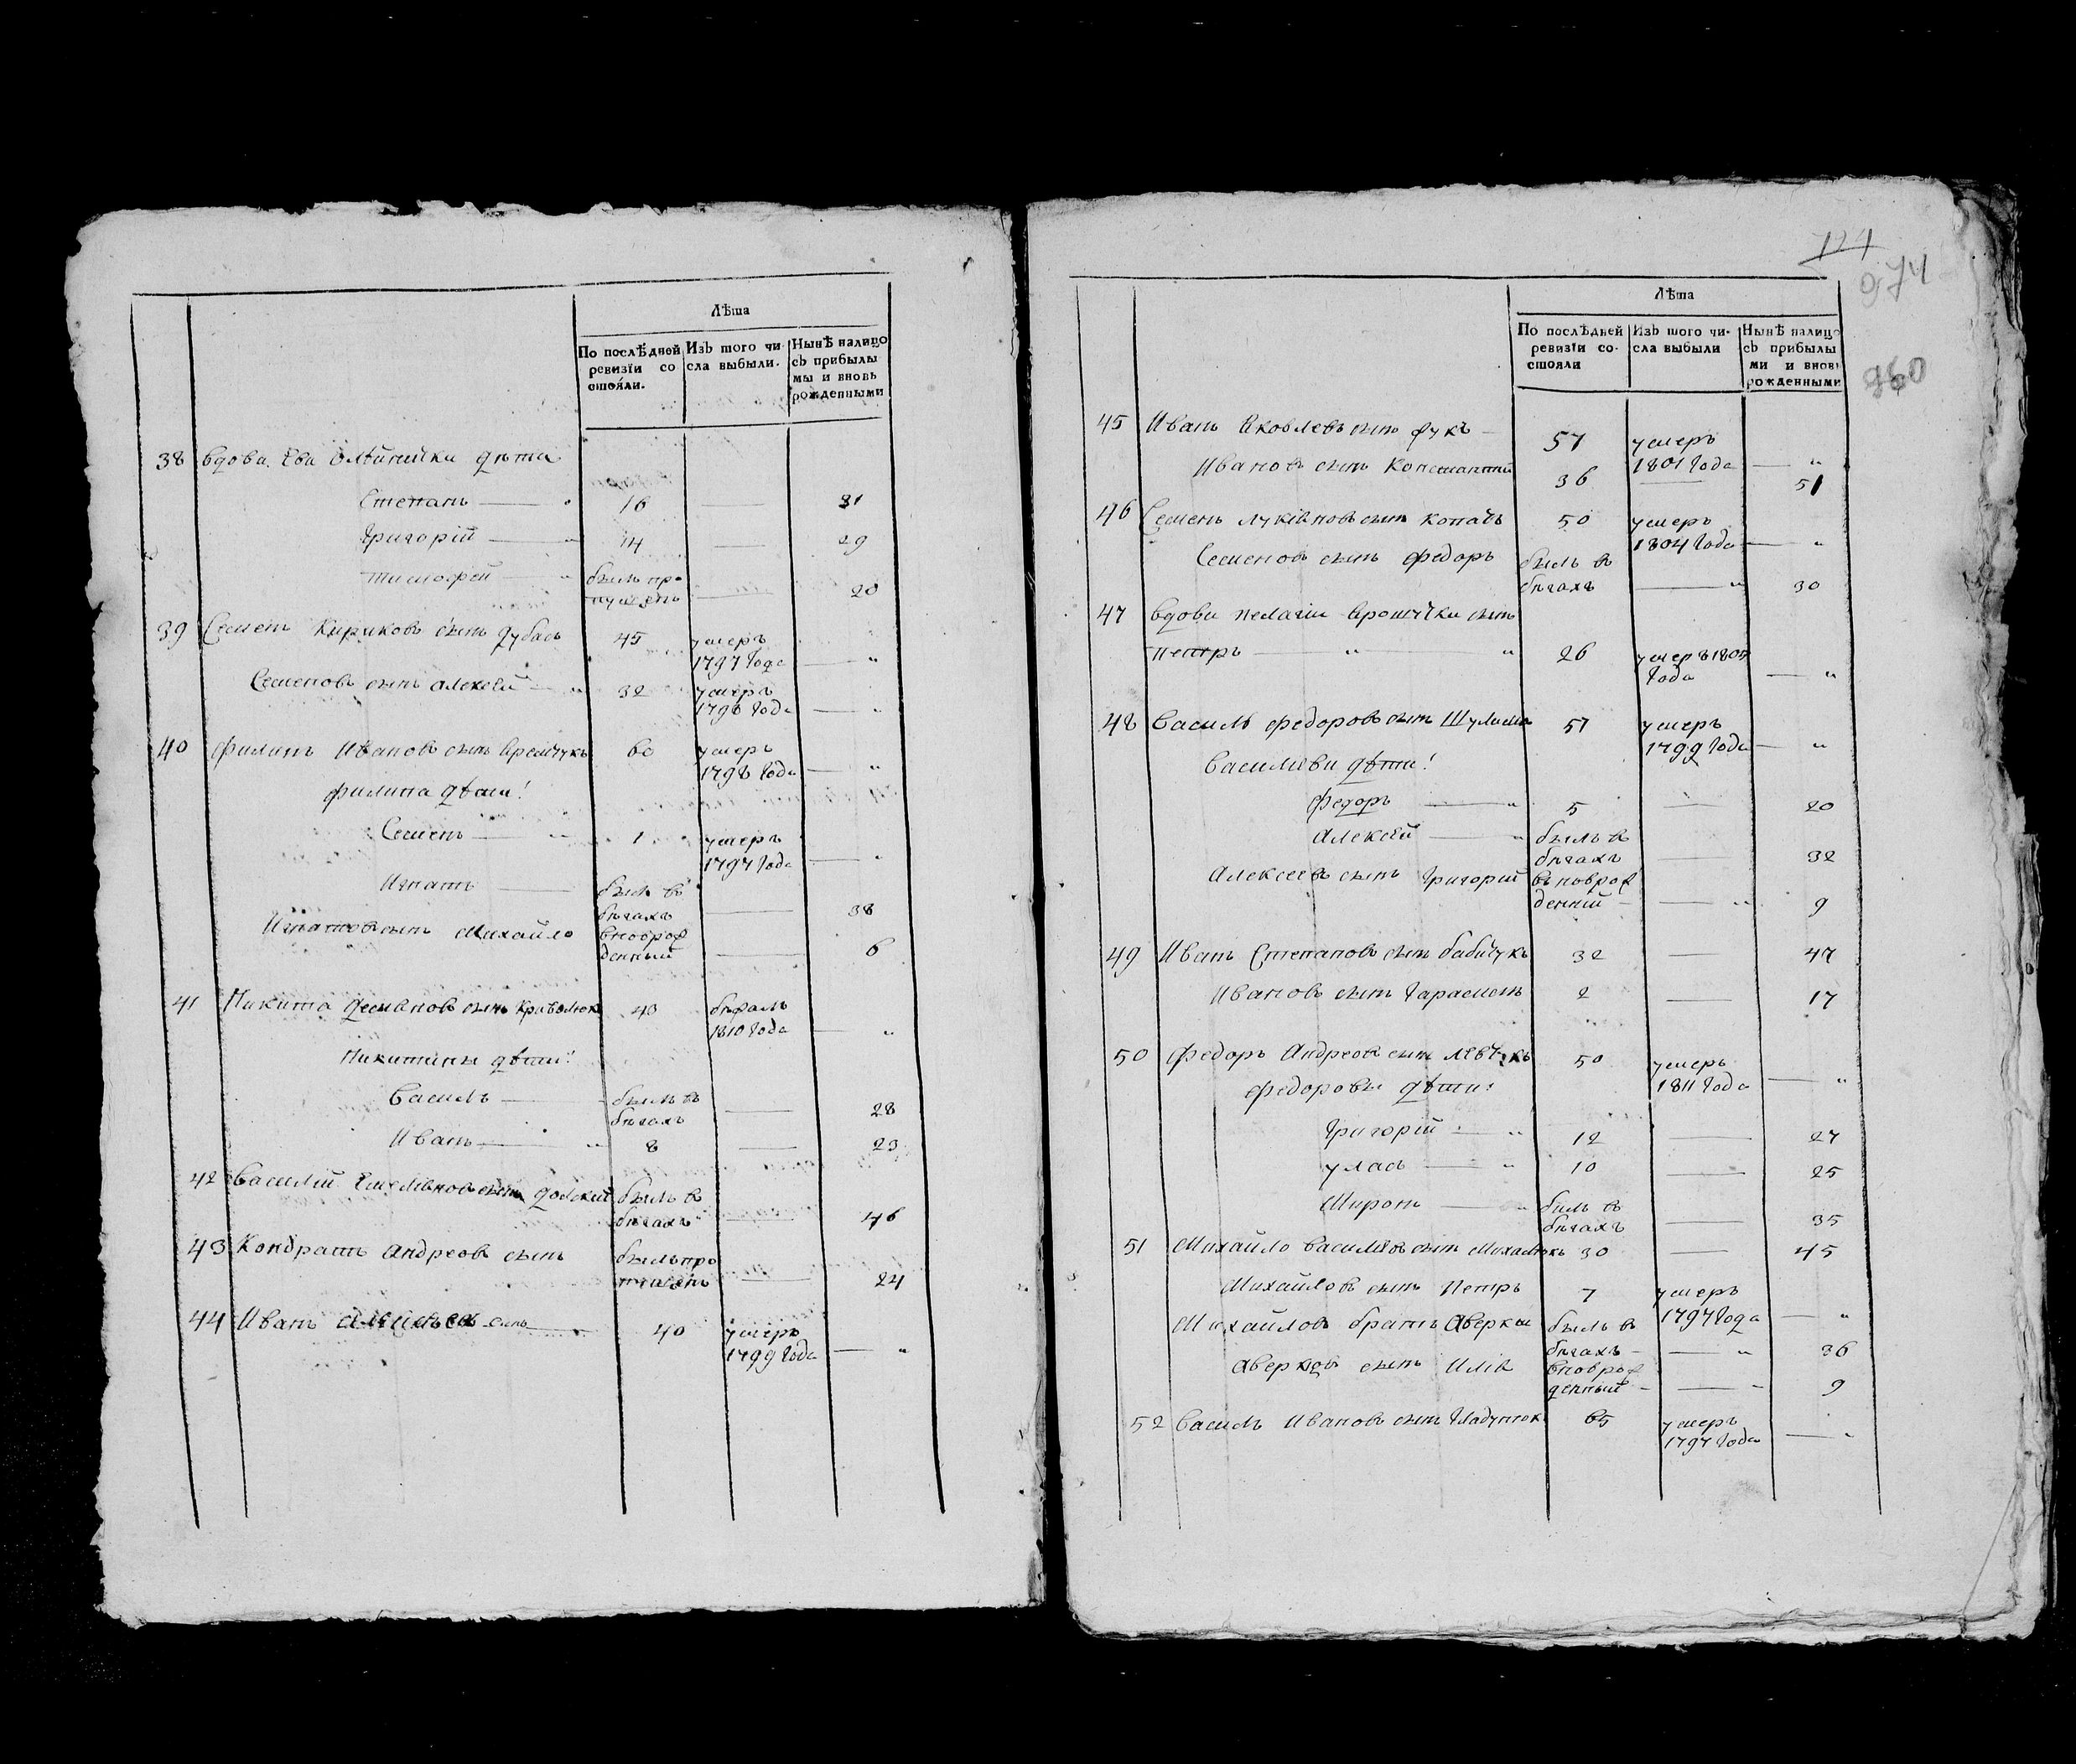 Лѣта
По послѣдней ревизіи со стояли.
Изъ того чи сла выбыли.
Нынѣ налицо съ прибылы мы и вновь рожденными
38 Вдова Ева дѣти
Степанъ 16 31
Григорій 14 29
Тимофей былъ про пущенъ 20
39 Семенъ Кириковъ сынъ Дубасъ 45 умеръ 1797 Года "
Семеновъ сынъ Алексѣй 32 умеръ 1798 Года "
40 Филипъ Ивановъ сынъ 60 умеръ 1798 Года "
Филипа дѣти:
Семенъ 1 умеръ 1797 Года "
Игнатъ былъ в бѣгахъ 38
Игнатовъ сынъ Михайло вновро& денный 6
41 Никита Демановъ сынъ 43 бѣжалъ 1810 Года "
Никитины дѣти:
Василь былъ въ бѣгахъ 28
Иванъ 8 23
42 Василій Емеляновъ сынъ былъ в бѣгахъ 46
43 Кондратъ Андреовъ сынъ былъ про пущенъ 24
44 Иванъ сынъ 40 умеръ 1799 Года "
724
974
960
Лѣта
По послѣдней ревизіи со- стояли
Изъ того чи- сла выбыли
Нынѣ налицо съ прибылы ми и вновь рожденными
45 Иванъ Яковлевъ сынъ Фукъ 57 умеръ 1801 Года "
Ивановъ сынъ Константій 36 51
46 Семенъ Лукіяновъ сынъ Копачъ 50 умеръ 1804 Года "
Семеновъ сынъ Федоръ былъ в бѣгахъ 30
47 Вдови Пелагіи сынъ
Петръ 26 умеръ 1805 Года "
48 Василь Федоровъ сынъ 57 умеръ 1799 Года "
Василеви дѣти:
Федоръ 5 20
Алексѣй былъ в бѣгахъ 32
Алексеевъ сынъ Григорій вновро& денній 9
49 Иванъ Степановъ сынъ Бабичукъ 32 47
Ивановъ сынъ Гарасменъ 2 17
50 Федоръ Андреовъ сынъ Левчукъ 50 умеръ 1811 Года "
Федоровы дѣти:
Григорій 12 27
Уласъ 10 25
Миронъ былъ в бѣгахъ 35
51 Михайло Василѣвъ сынъ Михалюкъ 30 45
Михайловъ сынъ Петръ 7 умеръ 1797 Года "
Михайловъ братъ Аверкій былъ в бѣгахъ 36
сынъ Илія вновро& денный 9
52 Василь Ивановъ сынъ 65 умеръ 1797 Года "